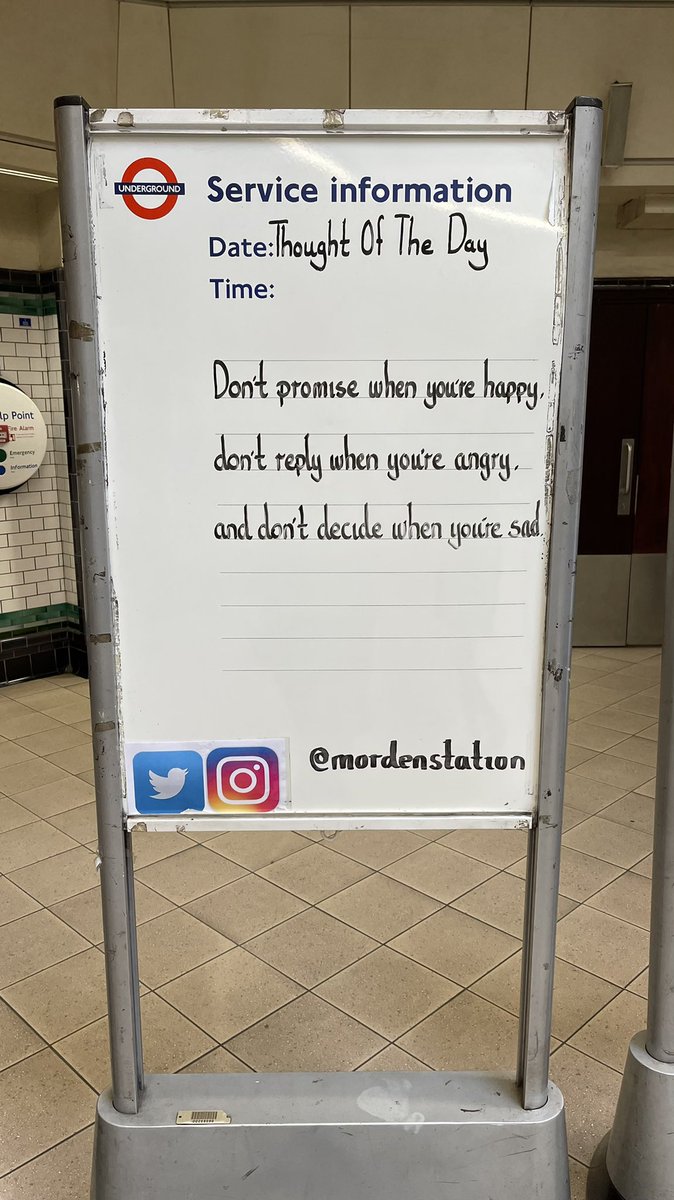 UNDERGROUND
Service information
Date: Thought Of The Day
Time:
Don't promise when you're happy,
don't reply when you're angry,
and don't decide when you're sad.
@mordenstation
lp Point
Fire Alarm
Emergency
Information